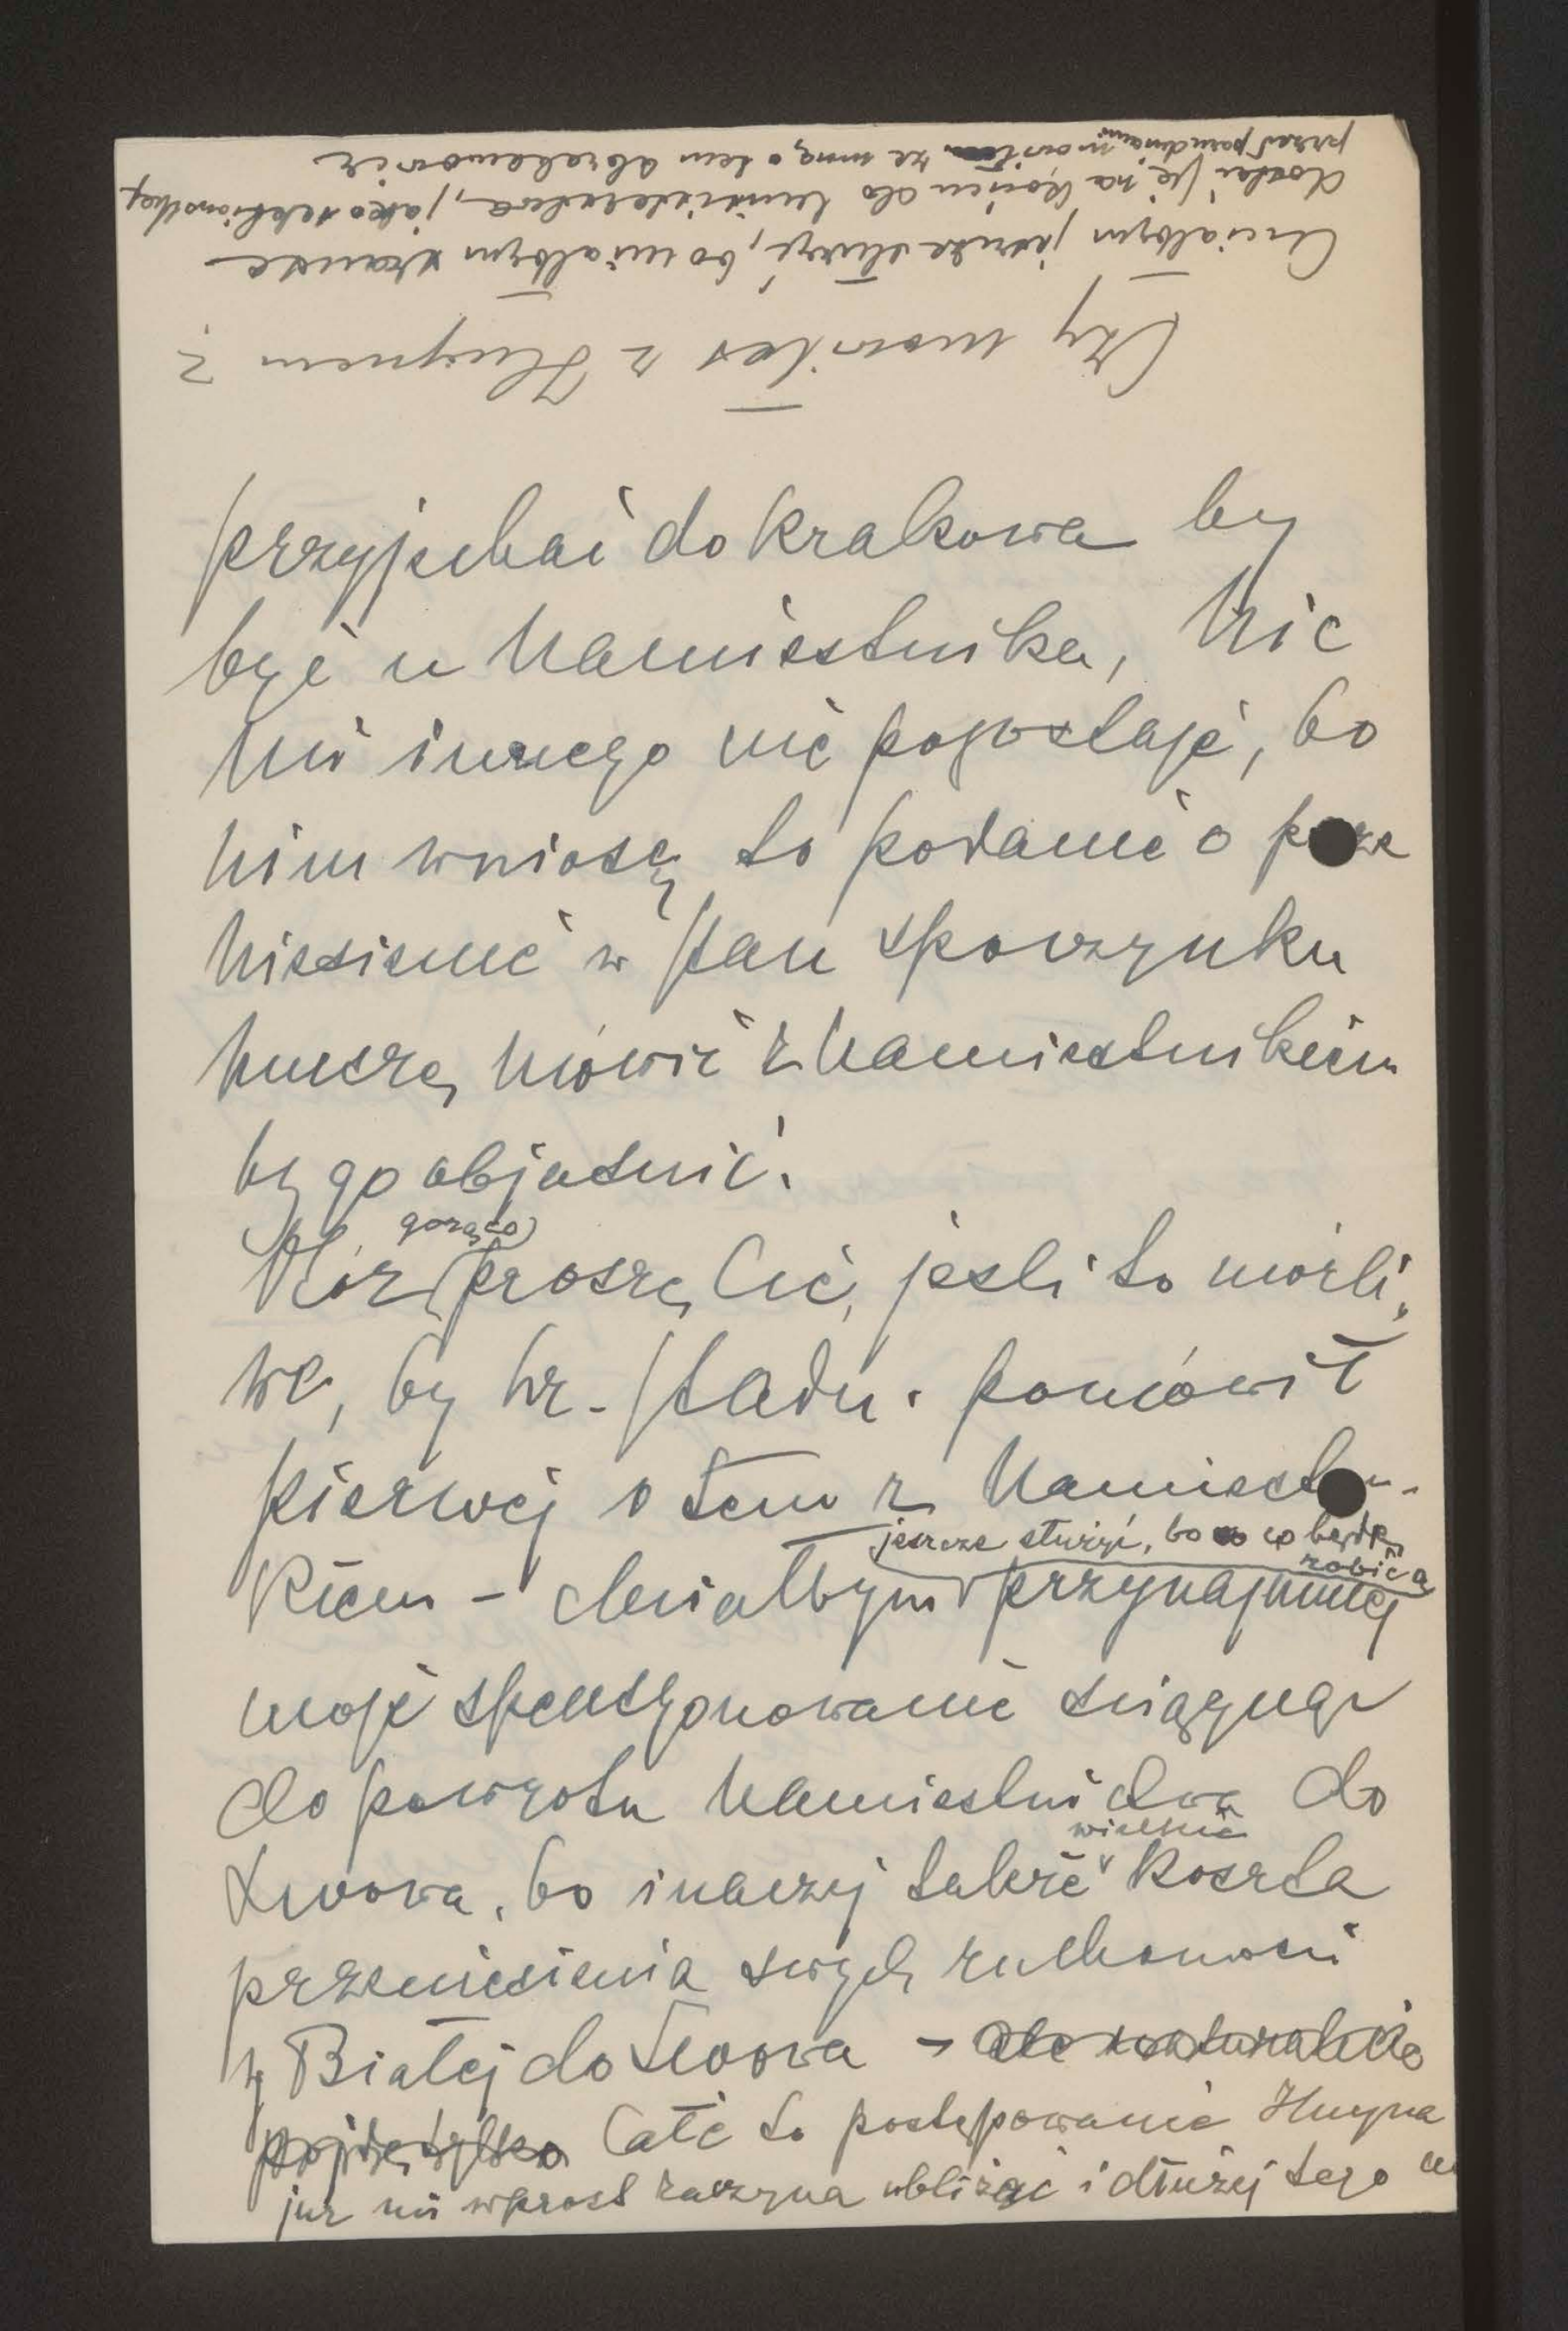 przyjechać do Krakowa by
być u Namiestnika, Nic
mi innego nie pozostaje, bo
nim wniosę to podanie o prze
niesienie w stan spoczynku
muszę mówić z Namiestnikiem
by go objaśnić.
Więc gorąco proszę Cię, jeśli to możli„
we, by hr. Stadn. pomówił
pierwej o tem z Namiestn-
kiem – chciałbym jeszcze służyć, bo co będę robić a przynajmniej
moje spensyonowanie ściągnąć
do powrotu Namiestnictwa do
Lwowa, bo inaczej także wielkie koszta
przeniesienia swych ruchomości
z Białej do Lwowa – ale naturalnie
pójdę tylko Całe to postępowanie Huyna
już mi wprost zaczyna ubliżać i dłużej tego
Czy mówiłeś z Huynem ?
Chciałbym jeszcze służyć, bo miałbym szanse
dostać się na końcu do ministerstwa, jako sekcjonschef
przed parudniami mówił ze mną o tem Abrahamowicz